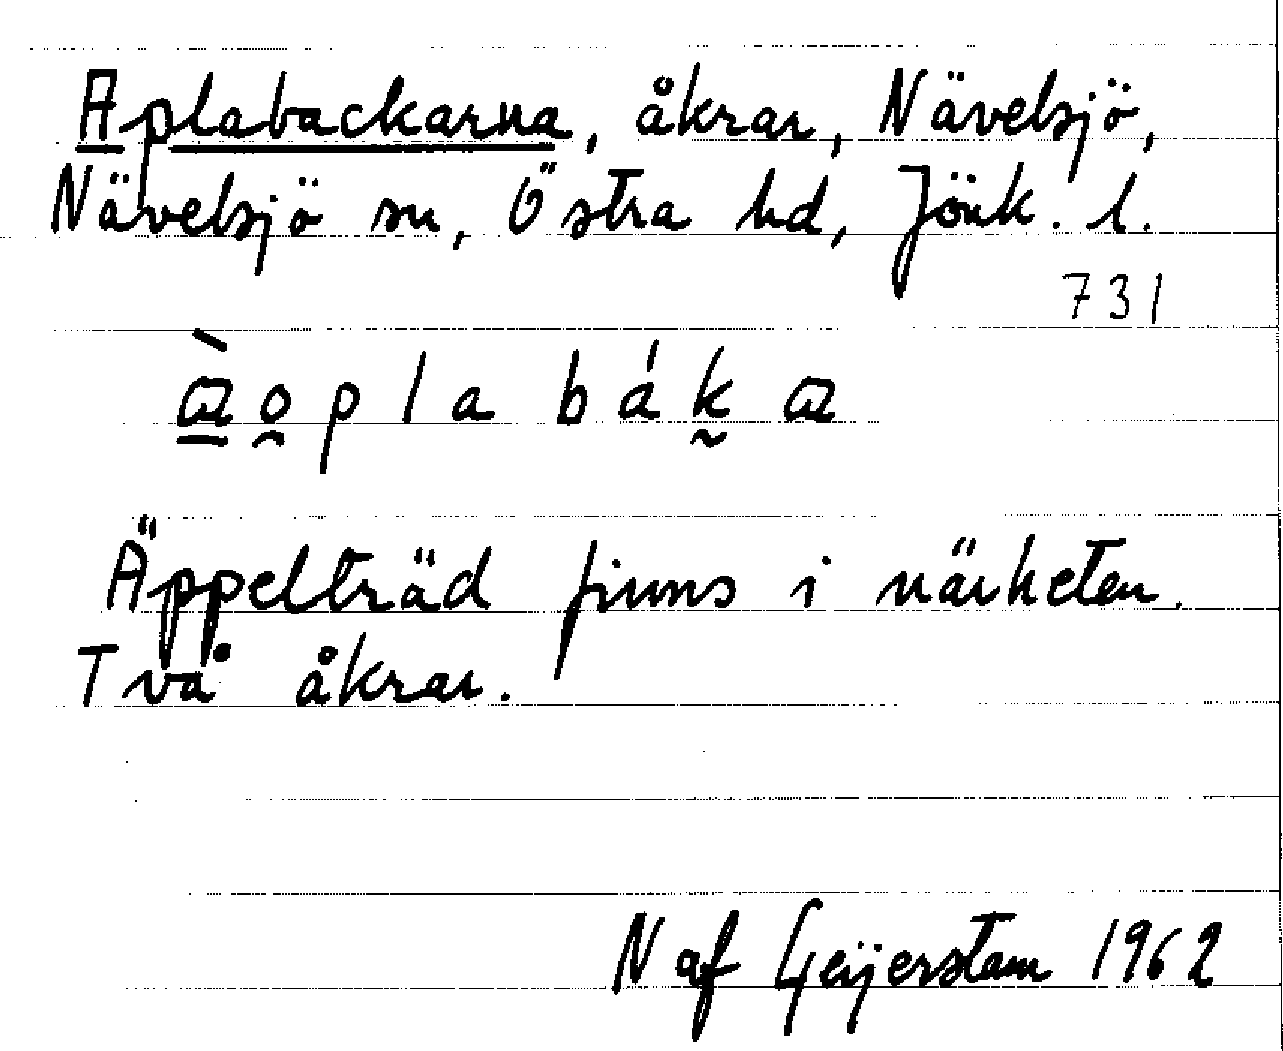 Aplabackarna, åkrar, Nävelsjö,
Nävelsjö sn, Östra hd, Jönk. l.
731
à̱o̯plabákɑ
Äppelträd finns i närheten.
Två åkrar.
N af Geijerstam 1962